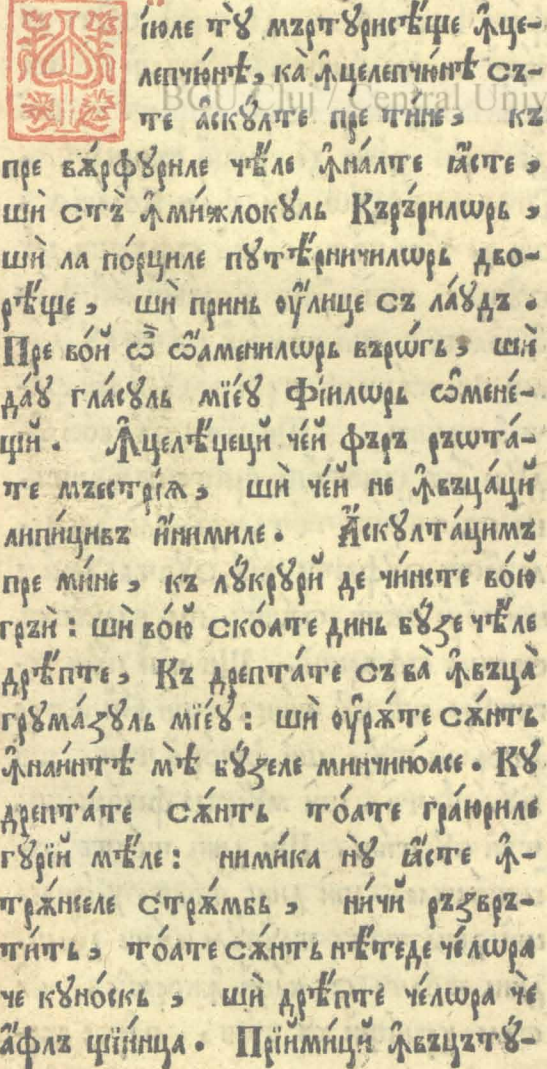 Фі́юле тꙋ̀ мъртꙋрисѣ́ще ꙟ҆це-
лепчю́нѣ, ка̀ ꙟ҆целепчю́нѣ съ-
те а҆скꙋ́лте пре ти́не, къ
пре вѫ́рфꙋриле чѣ́ле ꙟ҆на́лте ꙗ҆́сте,
шѝ стъ̀ ꙟ҆ми́жлокꙋль Къръ́рилѡрь,
шѝ ла по́рциле пꙋтѣ́рничилѡрь дво-
рѣ́ще, шѝ принь оу҆́лице съ ла́ꙋдъ.
Пре во́й ѽ ѡ҆́аменилѡрь върѡ́гь, шѝ
да́ꙋ гла́сꙋль мїе́ꙋ Фі́илѡрь ѡ҆мене́-
щй. Ꙟ҆целѣ́џецй че́й фъръ ръꙋта́-
те мъестрі́ѧ, шѝ че́й не ꙟ҆въца́цй
липи́цивъ и҆́нимиле. А҆скꙋлта́цимъ
пре ми́не, къ лꙋ́крꙋрй де чи́нсте во́ю
гръѝ: шѝ во́ю ско́ате динь бꙋ́зе чѣ́ле
дрѣ́пте, Къ дрепта́те съ ва̀ ꙟ҆въца̀
грꙋма́зꙋль мїе́ꙋ: шѝ оу҆рѫ́те сѫ́нть
ꙟ҆наи́нтѣ мѣ̀ бꙋ́зеле минчино́асе. Кꙋ
дрепта́те сѫ́нть то́ате гра́юриле
гꙋ́рїй мѣ́ле: ними́ка нꙋ̀ ꙗ҆́сте ꙟ҆-
трѫ́нселе стрѫ́мбь, ни́чй ръзвръ-
ти́ть, то́ате сѫ́нть нѣ́теде че́лѡра
че кꙋно́скь, шѝ дрѣ́пте че́лѡра чѐ
а҆́флъ щїи́нца. Прїими́цй ꙟ҆въцътꙋ́-
BCU Cluj / Central Univ